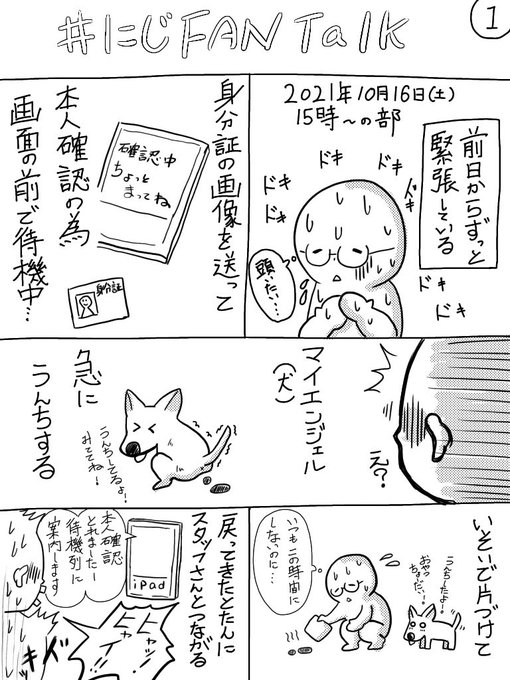 1
#にじFANTalk
2021年10月16日(土)
15時〜の部
前日からずっと
緊張している
ドキ
ドキ
ドキ
ドキ
ドキ
ドキ
ドキ
頭いたい…
身分証の画像を送って
確認中
ちょっと
まってね
身分証
本人確認の為
画面の前で待機中…
え?
マイエンジェル
(犬)
急に
うんちする
うんちしてるよ!
みててね!
いそいで片づけて
いつもこの時間に
しないのに…
うんちしたよ!
おやつ
ちょーだい!
戻ってきたとたんに
スタッフさんとつながる
iPad
本人確認
とれましたー
待機列に
案内しまーす
ヒャイッ